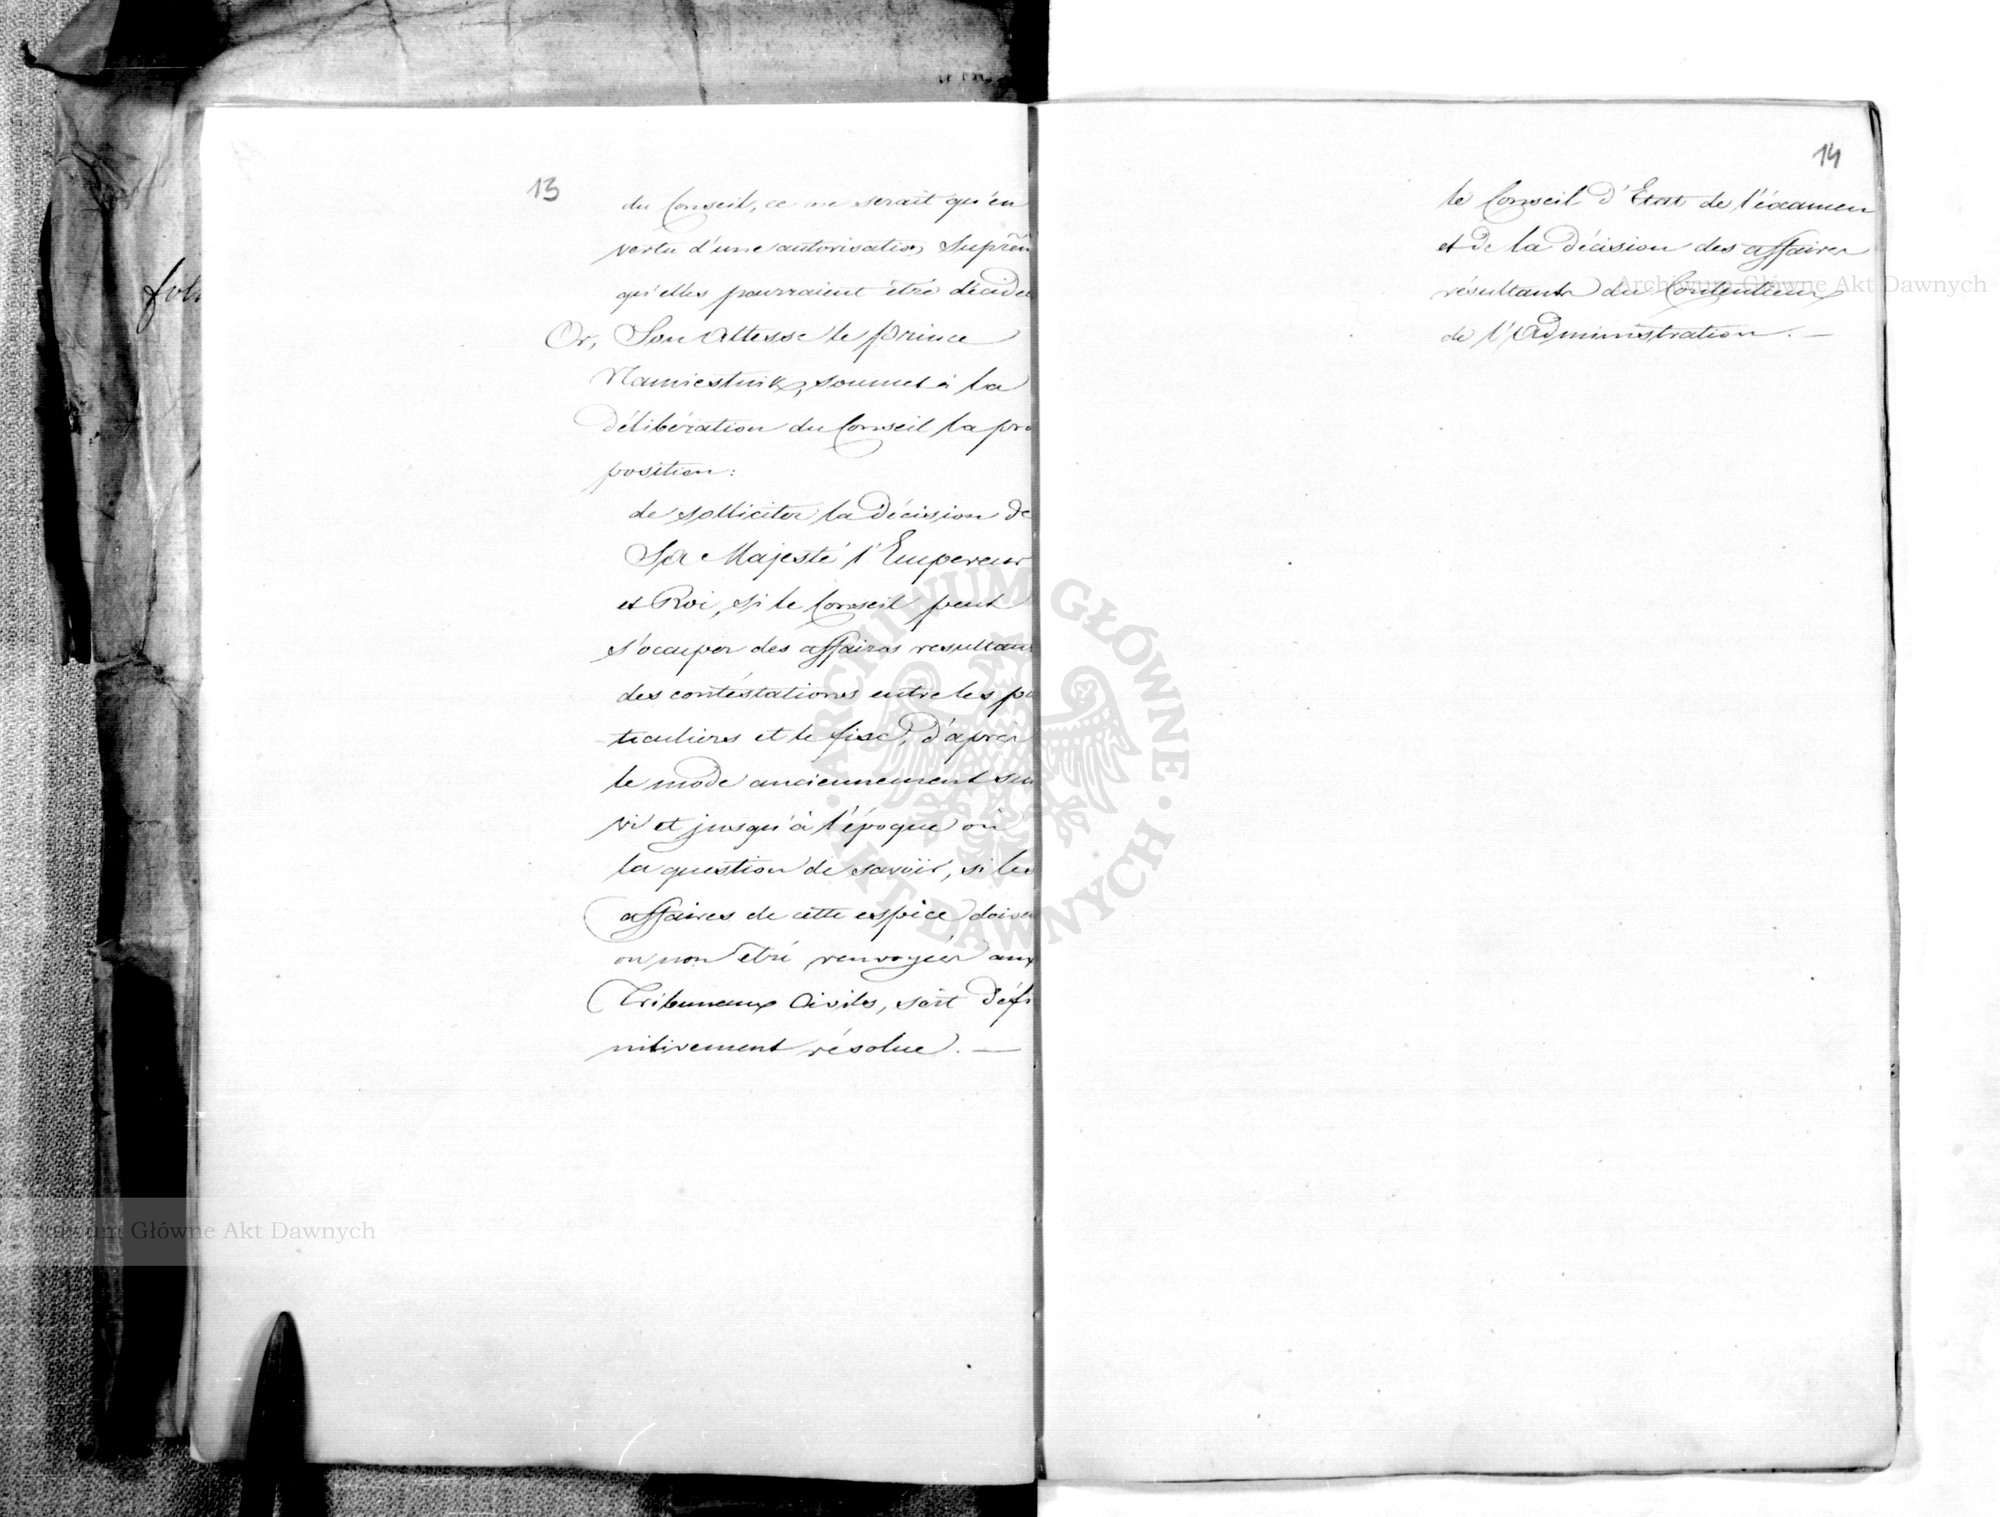 13
du Conseil, ce ne serait qu'en
vertu d'une autorisation Suprêm
qu'elles pourraient être décidée
Or, Son Altesse le prince
Namiestnik, soumet à la
délibération du Conseil la pro
position:
de solliciter la décision de
Sa Majesté l'Empereur
et Roi, si le Conseil peut
s'occuper des affaires resultan
des contéstations entre les pa
ticuliers et le fisc, d'après
le mode anciennement sui
vi et jusqu'à l'époque où
la question de savoir, si les
affaires de cette espèce doive
ou non être renvoyées aux
Tribunaux Civiles, soit défi
nitivement résolue. —
14
le Conseil d'Etat de l'éxamen
et de la décision des affaires
résultants du Contentieux
de l'Administration. —
Archiwum Główne Akt Dawnych
ARCHIWUM GŁÓWNE · AKT DAWNYCH ·
Archiwum Główne Akt Dawnych